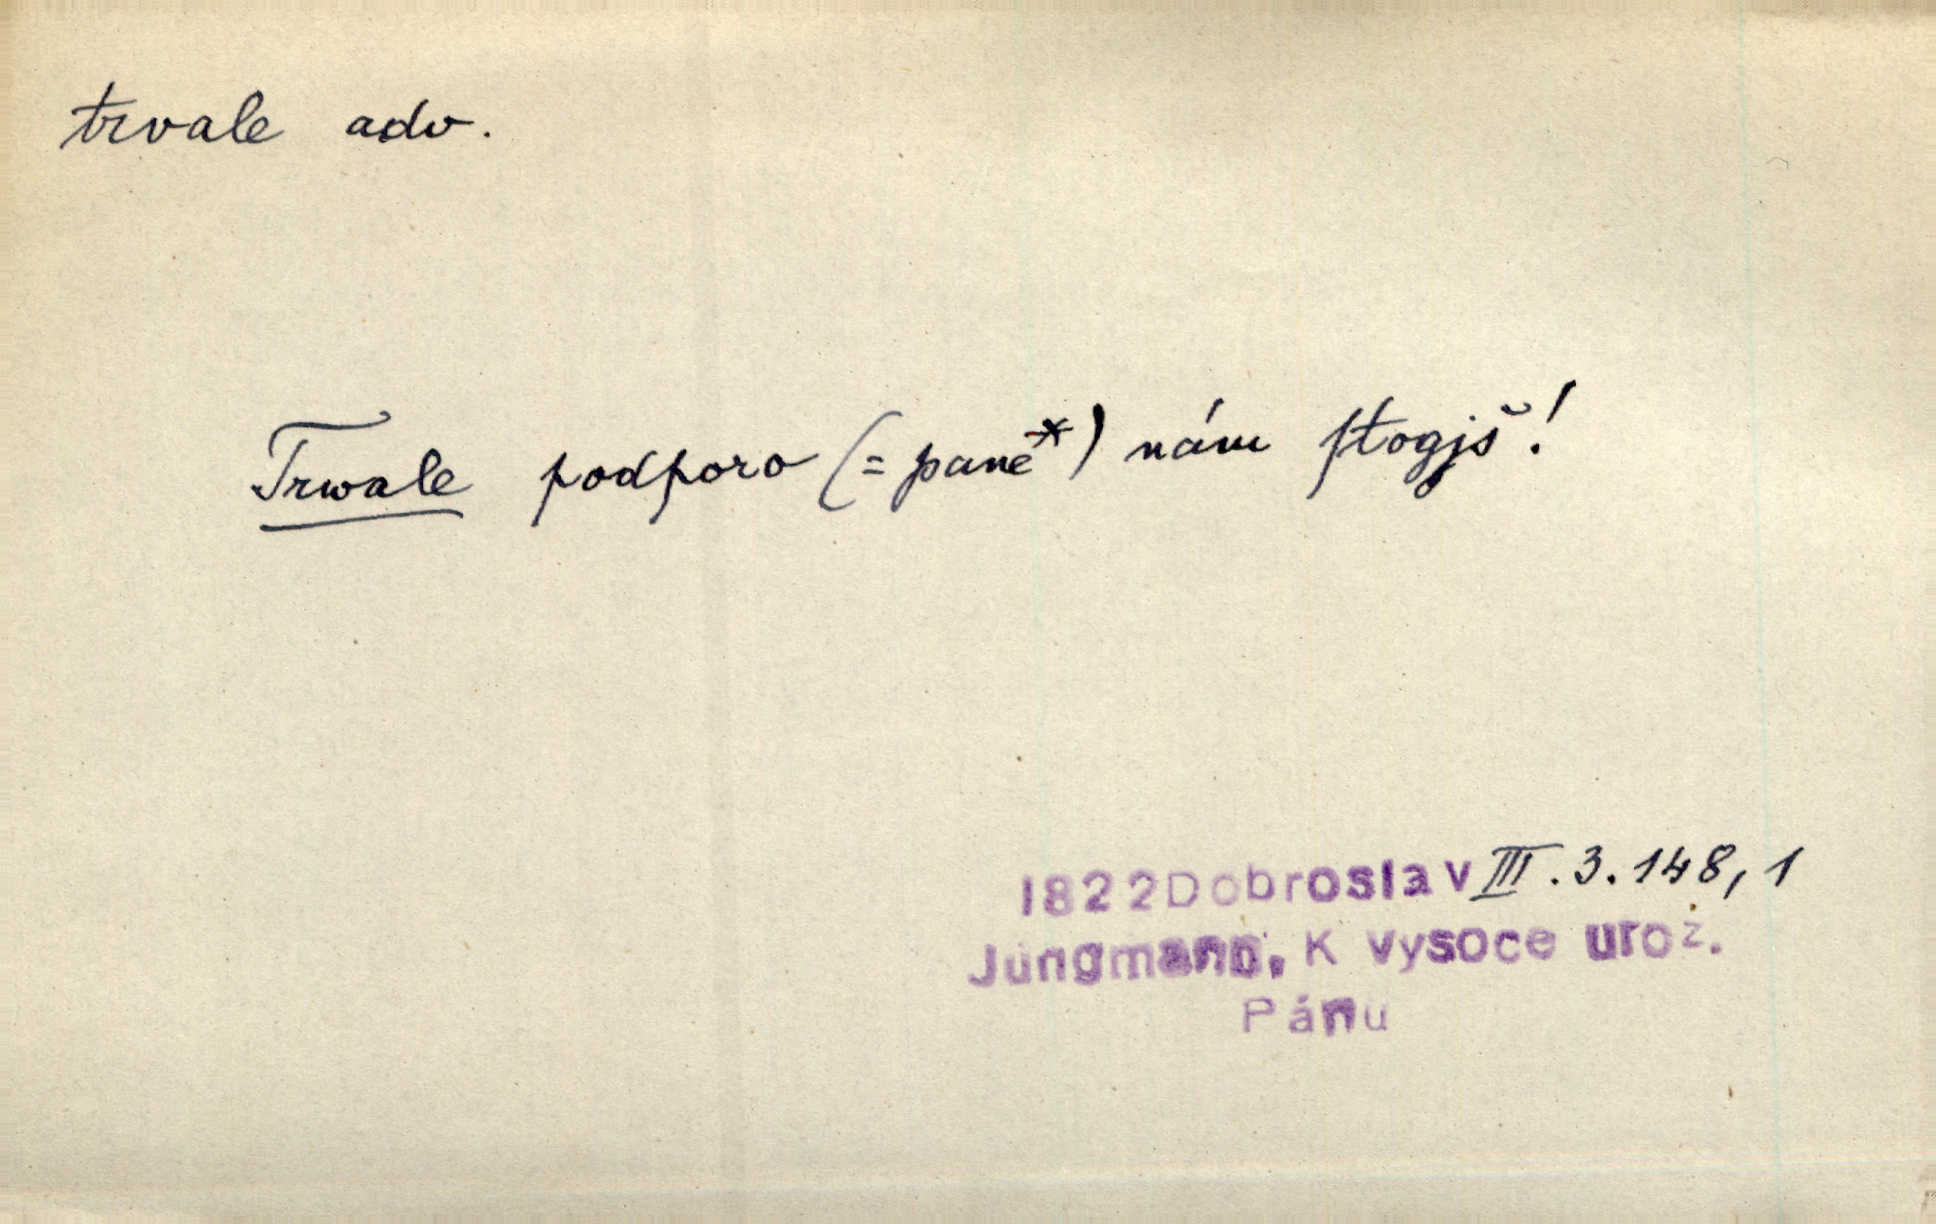 trvale adv.
Trwale podporo (= pane*) nám ſtogjš!
1822 Dobroslav III. 3. 148, 1
Jungmann, K vysoce urož.
Pánu